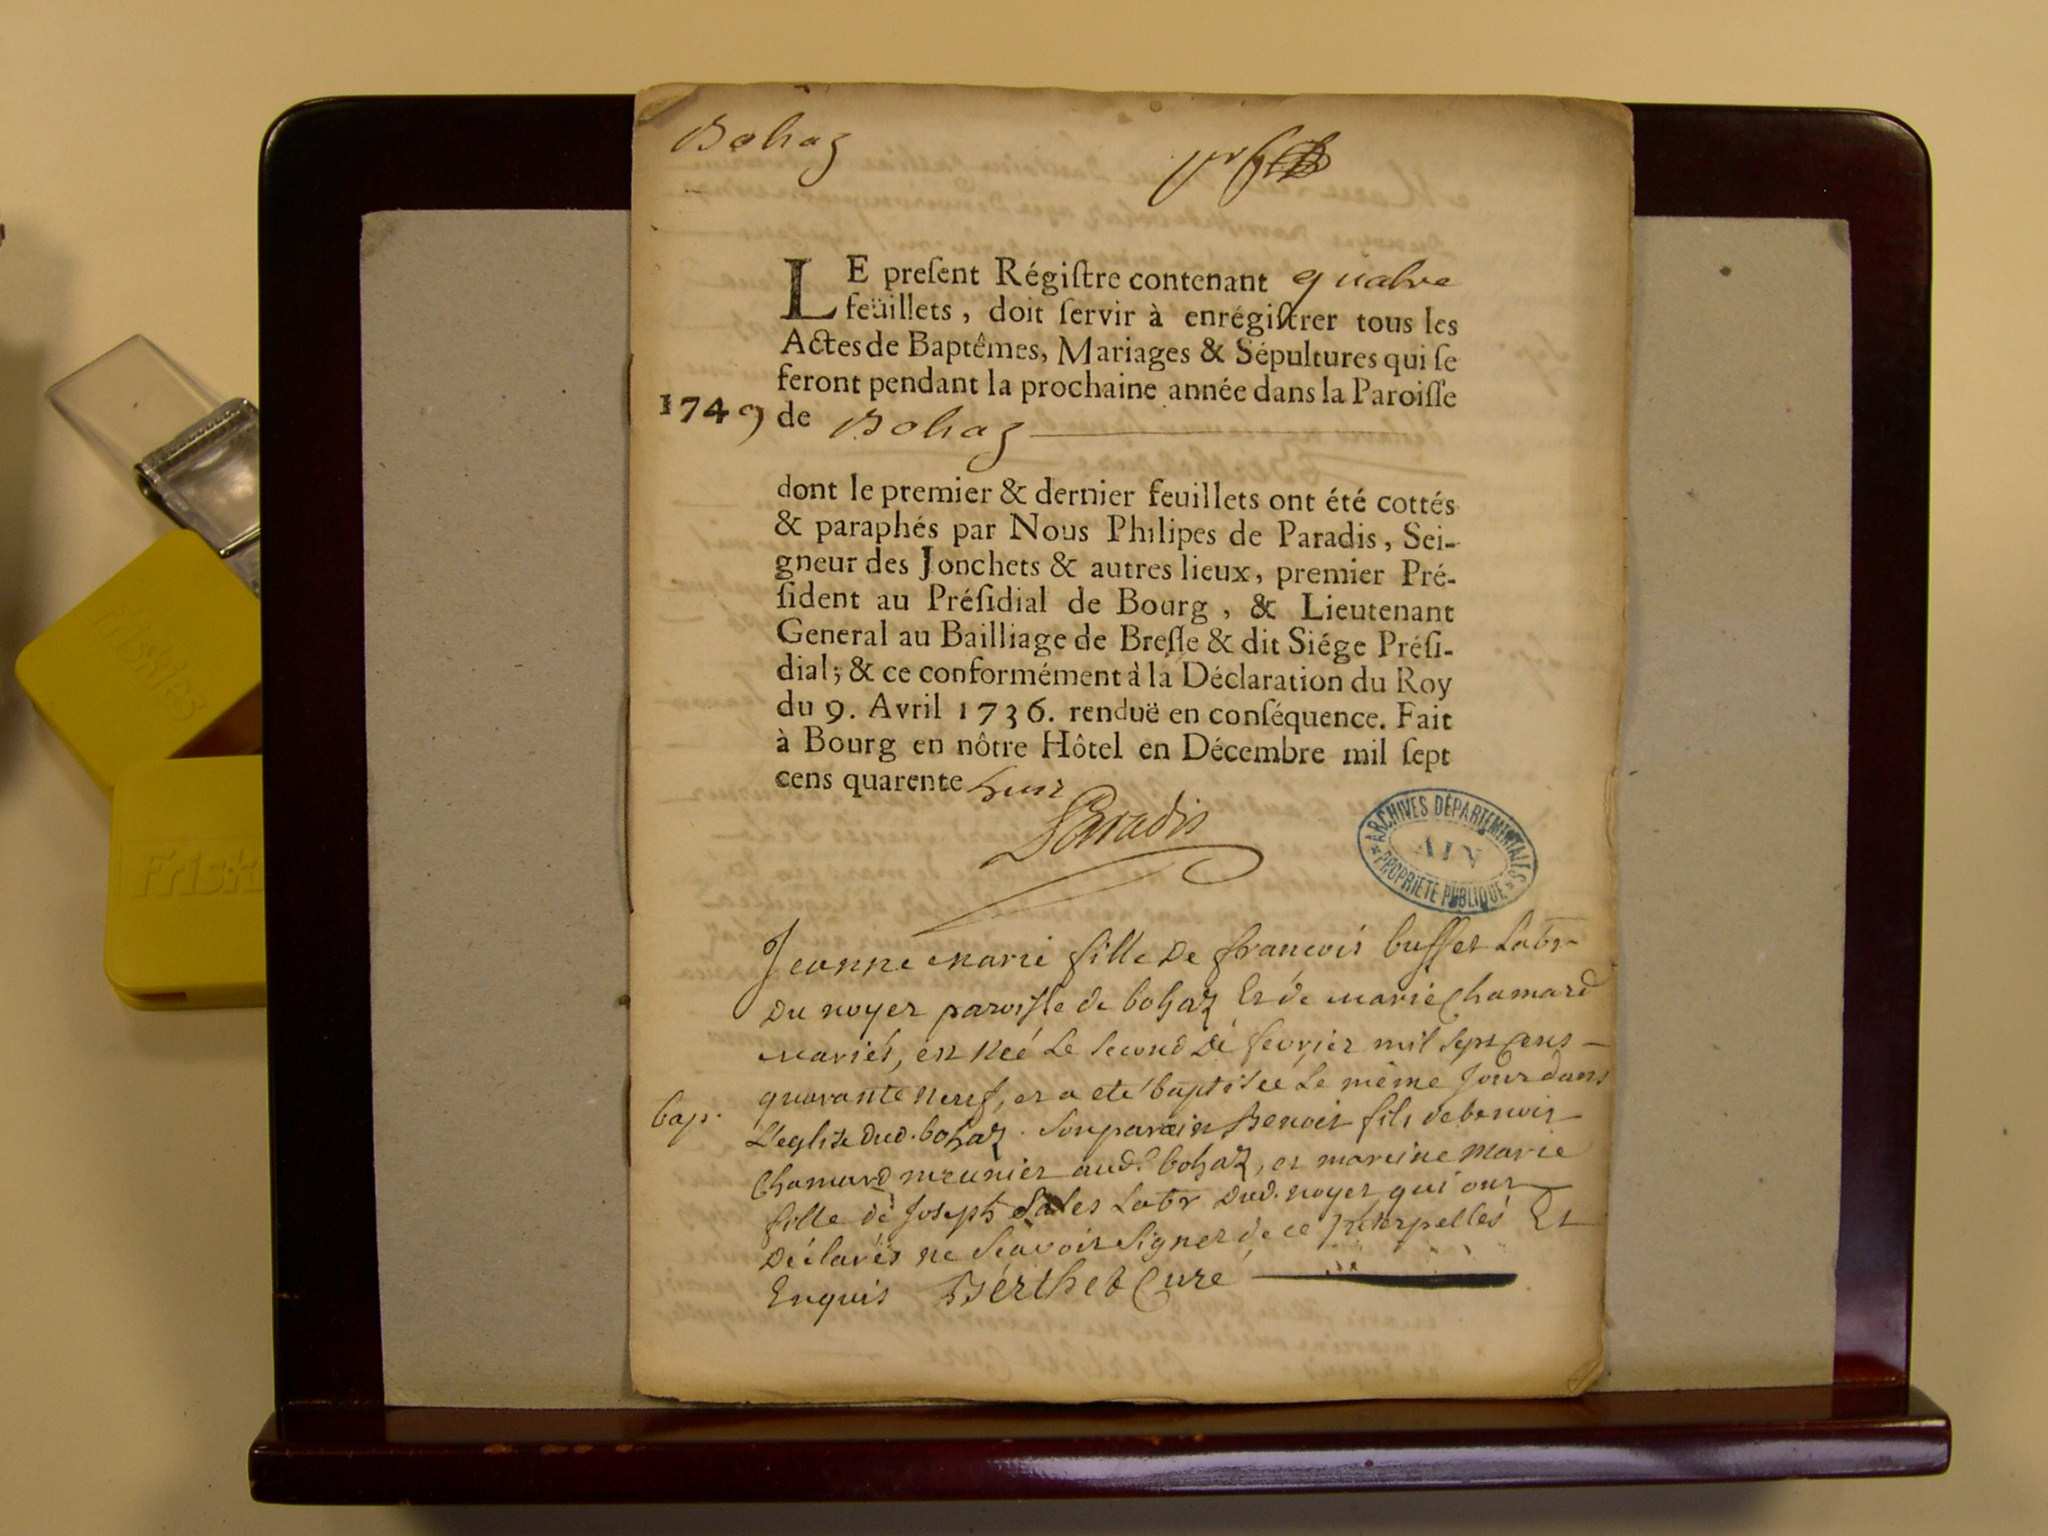 Bohaz
LE present Régistre contenant quatre
feüillets, doit servir à enrégistrer tous les
Actes de Baptêmes, Mariages & Sépultures qui se
feront pendant la prochaine année dans la Paroisse
1749 de Bohaz
dont le premier & dernier feuillets ont été cottés
& paraphés par Nous Philipes de Paradis, Sei-
gneur des Jonchets & autres lieux, premier Pré-
sident au Présidial de Bourg, & Lieutenant
General au Bailliage de Bresse & dit Siége Prési-
dial; & ce conformément à la Déclaration du Roy
du 9. Avril 1736. renduë en conséquence. Fait
à Bourg en nôtre Hôtel en Décembre mil sept
cens quarente huit
Paradis
ARCHIVES DÉPARTEMENTALES
AIN
PROPRIÉTÉ PUBLIQUE
Jeanne marie fille De francois buffet Labr
Du noyer paroisse de bohaz Et de marie Chamard
mariés, est Neé Le second De fevrier mil sept Cens
quarante neuf, et a eté baptisée Le même Jour dans
bap. L'eglise dud. bohaz. Son parain Benoit fils de benoit
Chamard meunier aud. bohaz, et mareine Marie
fille de Joseph Labr Dud. noyer qui ont
Déclarés ne Sçavoir Signer de ce Interpellés Et
Enquis Berthet Curé
Friskies
Friski